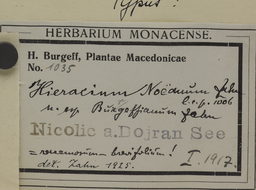 Typus!
HERBARIUM MONACENSE.
H. Burgeff, Plantae Macedonicae
No. 1035
Hieracium Noëanum Zahn
n. sp. Burgeffianum Zahn l.c.p. 1006
Nicolic a. Dojran See
= racemosum – brevifolium!
det. Zahn 1925. I. 1917.